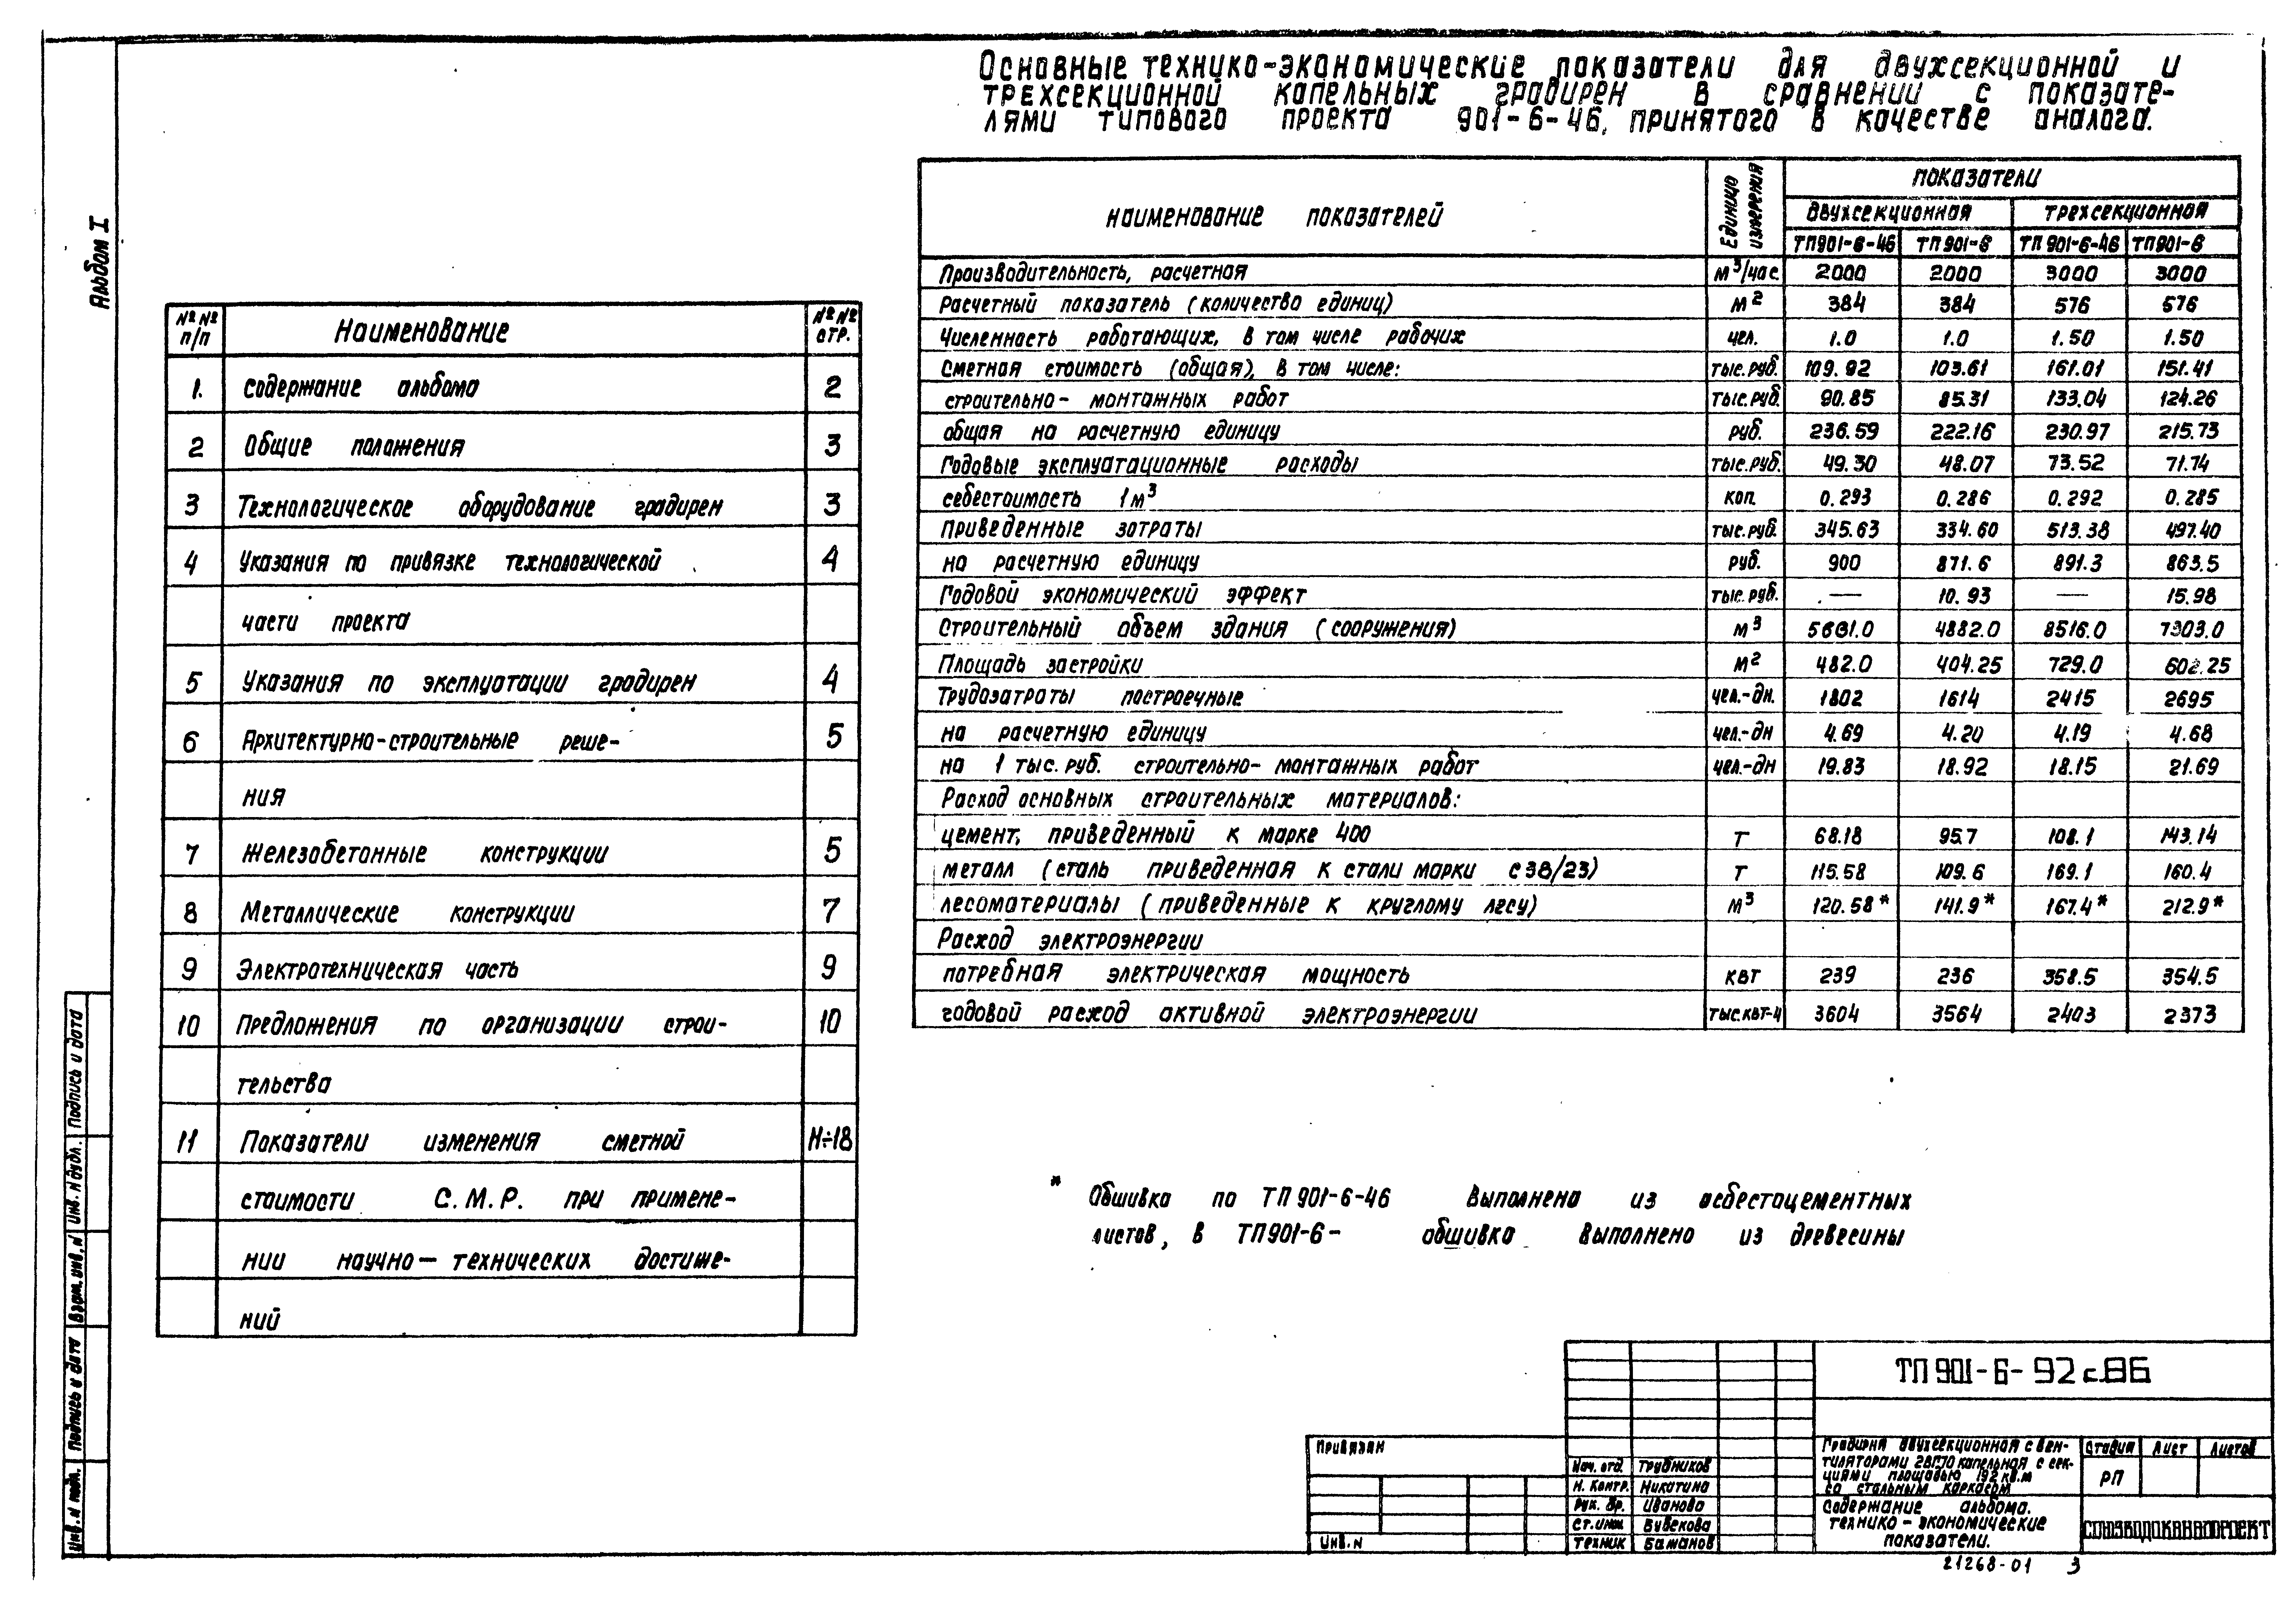 Основные технико-экономические показатели для двухсекционной и
трехсекционной капельных градирен в сравнении с показате-
лями типового проекта 901-6-46, принятого в качестве аналога.
Альбом I
№№ п/п Наименование №№ стр.
1. Содержание альбома 2
2 Общие положения 3
3 Технологическое оборудование градирен 3
4 Указания по привязке технологической 4
части проекта
5 Указания по эксплуатации градирен 4
6 Архитектурно-строительные реше- 5
ния
7 Железобетонные конструкции 5
8 Металлические конструкции 7
9 Электротехническая часть 9
10 Предложения по организации строи- 10
тельства
11 Показатели изменения сметной 11÷18
стоимости С.М.Р. при примене-
нии научно-технических достиже-
ний
наименование показателей Единица измерения показатели
двухсекционная трехсекционная
ТП901-6-46 ТП901-6 ТП901-6-46 ТП901-6
Производительность, расчетная м³/час 2000 2000 3000 3000
Расчетный показатель (количество единиц) м² 384 384 576 576
Численность работающих, в том числе рабочих чел. 1.0 1.0 1.50 1.50
Сметная стоимость (общая), в том числе: тыс.руб. 109.92 103.61 161.01 151.41
строительно-монтажных работ тыс.руб. 90.85 85.31 133.04 124.26
общая на расчетную единицу руб. 236.59 222.16 230.97 215.73
Годовые эксплуатационные расходы тыс.руб. 49.30 48.07 73.52 71.74
себестоимость 1м³ коп. 0.293 0.286 0.292 0.285
Приведенные затраты тыс.руб. 345.63 334.60 513.38 497.40
на расчетную единицу руб. 900 871.6 891.3 863.5
Годовой экономический эффект тыс.руб. — 10.93 — 15.98
Строительный объем здания (сооружения) м³ 5661.0 4882.0 8516.0 7303.0
Площадь застройки м² 482.0 404.25 729.0 602.25
Трудозатраты построечные чел.-дн. 1802 1614 2415 2695
на расчетную единицу чел.-дн 4.69 4.20 4.19 4.68
на 1 тыс.руб. строительно-монтажных работ чел.-дн 19.83 18.92 18.15 21.69
Расход основных строительных материалов:
цемент, приведенный к марке 400 т 68.18 95.7 108.1 143.14
металл (сталь приведенная к стали марки с38/23) т 115.58 109.6 169.1 160.4
лесоматериалы (приведенные к круглому лесу) м³ 120.58* 141.9* 167.4* 212.9*
Расход электроэнергии
потребная электрическая мощность квт 239 236 358.5 354.5
годовой расход активной электроэнергии тыс.квт-ч 3604 3564 2403 2373
* Обшивка по ТП901-6-46 выполнена из асбестоцементных
листов, в ТП901-6- обшивка выполнено из древесины
Инв.N подл. Подпись и дата Взам.инв.N Инв.N дубл. Подпись и дата
ТП901-6-92с.86
Привязан
Инв.N
Нач.отд. Трубников
Н.Контр. Никитина
Рук.Бр. Иванова
Ст.инж Бубекова
Техник Бажанов
Градирня двухсекционная с вен-
тиляторами 2ВГ70 капельная с сек-
циями площадью 192 кв.м
со стальным каркасом
Стадия Лист Листов
РП
Содержание альбома.
Технико-экономические
показатели.
СОЮЗВОДОКАНАЛПРОЕКТ
21268-01 3